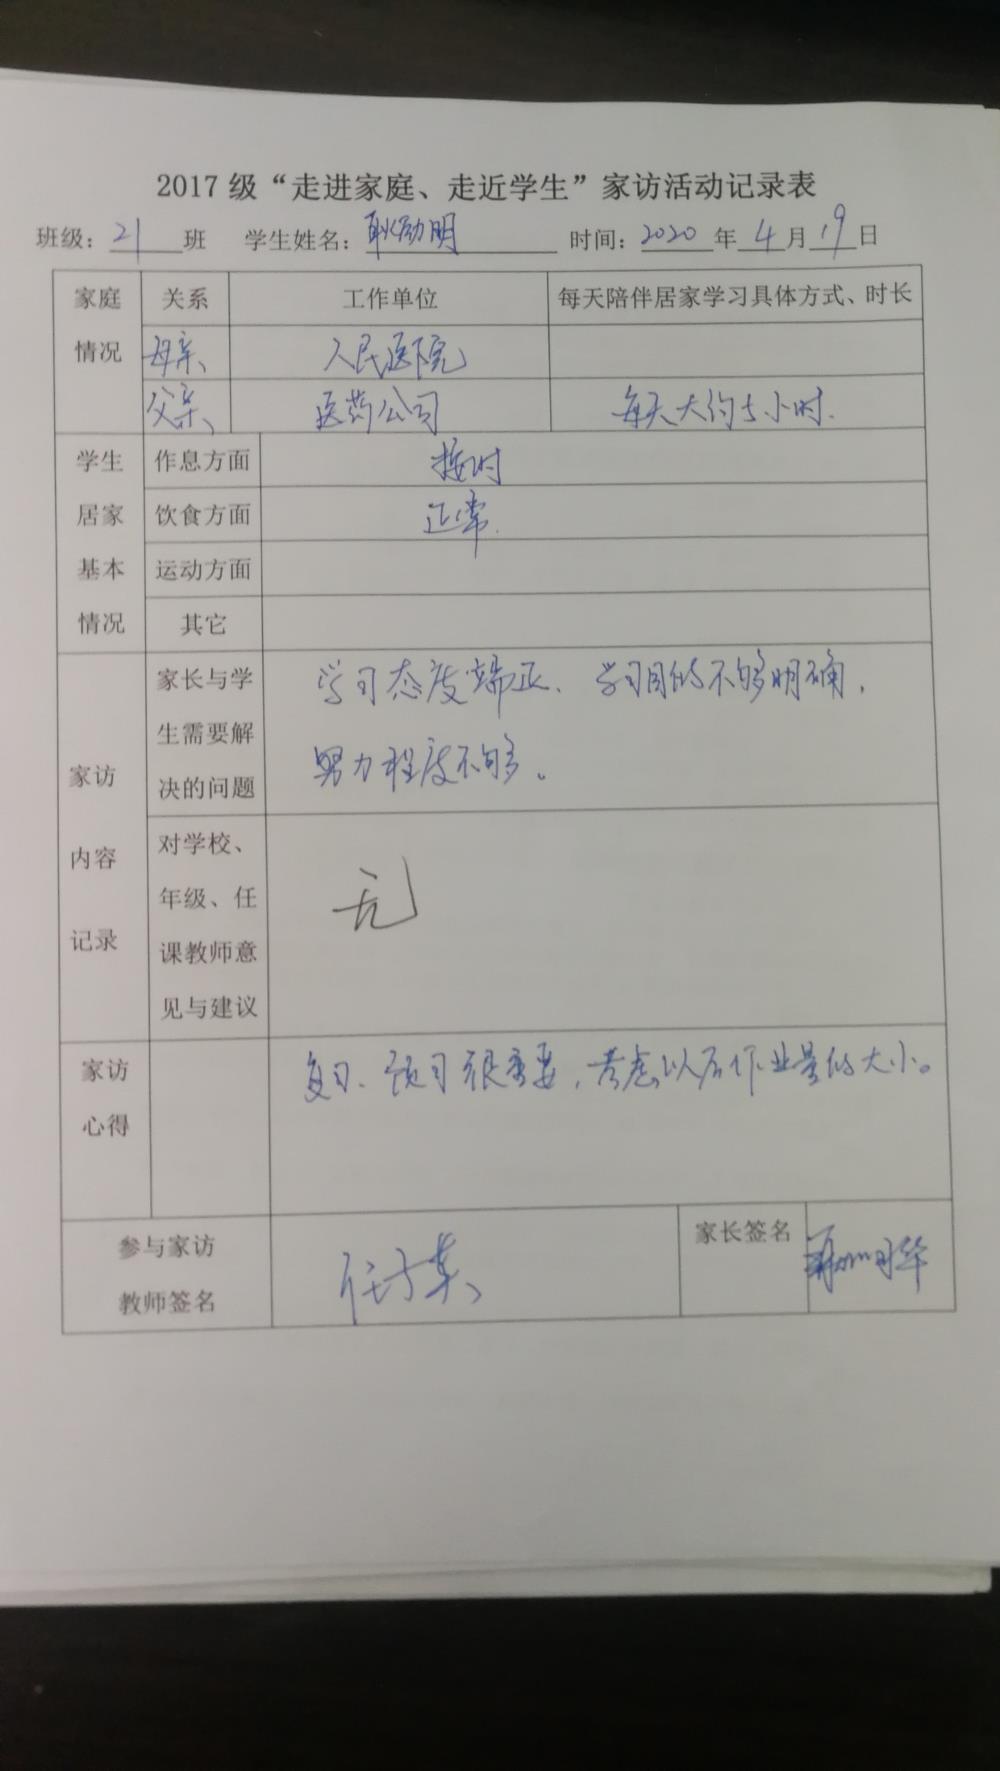 2017级“走进家庭、走近学生”家访活动记录表
班级：21班 学生姓名：耿励明 时间：2020年4月19日
家庭情况 关系 工作单位 每天陪伴居家学习具体方式、时长
母亲 人民医院
父亲 医药公司 每天大约5小时.
学生居家基本情况 作息方面 按时
饮食方面 正常.
运动方面
其它
家访内容记录
家长与学生需要解决的问题
学习态度端正、学习目的不够明确，
努力程度不够。
对学校、年级、任课教师意见与建议
无
家访心得
复习、预习很重要，考虑以后作业量的大小。
参与家访教师签名
家长签名